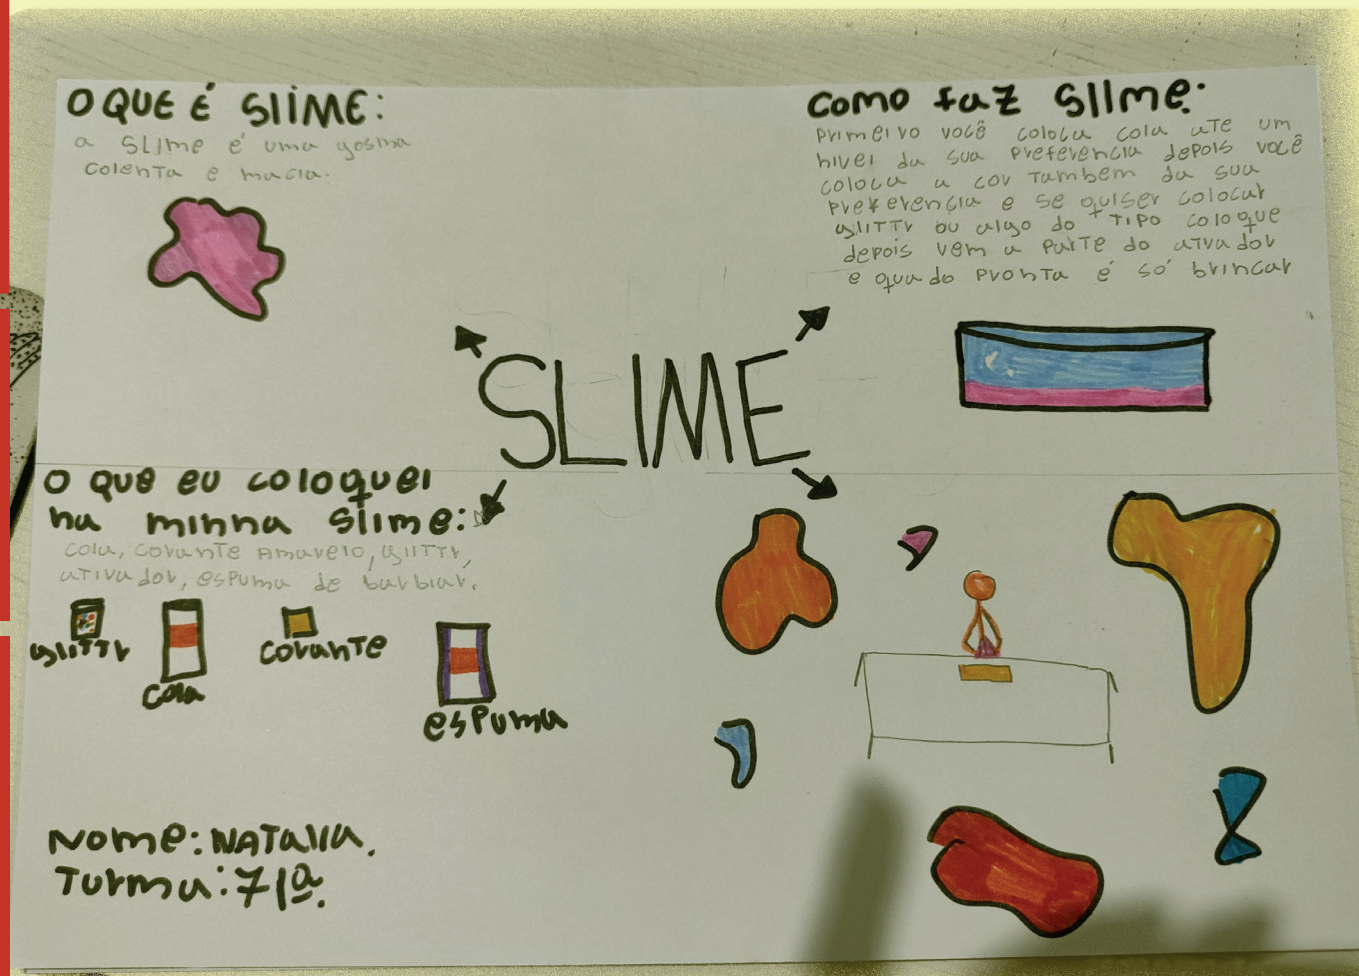 O QUE É SLIME:
a SLime é uma gosma
colenta e macia.
como faz slime:
Primeiro você coloca cola ate um
nivel da sua Preferencia depois você
coloca a cor Tambem da sua
Preferencia e se quiser colocar
gliTTr ou algo do TiPo coloque
depois vem a parte do aTivador
e quado PronTa é só brincar
SLIME
O que eu coloquei
na minha slime:
cola, coranTe Amarelo, gliTTr,
aTivador, esPuma de barbiar.
gliTTr
cola
coranTe
esPuma
Nome: NATALIA.
Turma: 71ª.